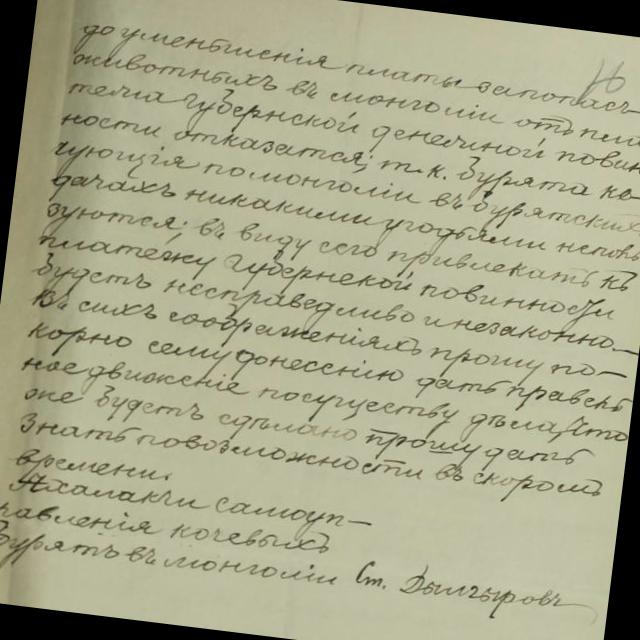 до уменьшенія платы за попасъ
животныхъ въ монголіи отъ пла
тежа губернской денежной повин
ности отказатся; т. к. Буряты ко
чующія по монголіи въ Бурятскихъ
дачахъ никакими угодьями непол
зуются; въ виду сего привлекать къ
платежу губернской повинности
будетъ несправедливо и незаконно—
въ сихъ соображеніяхъ прошу по—
корно сему донесенію дать правель
ное движеніе посуществу дѣла, что
же будетъ сдѣлано прошу дать
знать по возможности въ скоромъ
времени.
Ахалакчи самоуп—
равленія кочевыхъ
Бурятъ въ монголіи Ст. Дылчыровъ